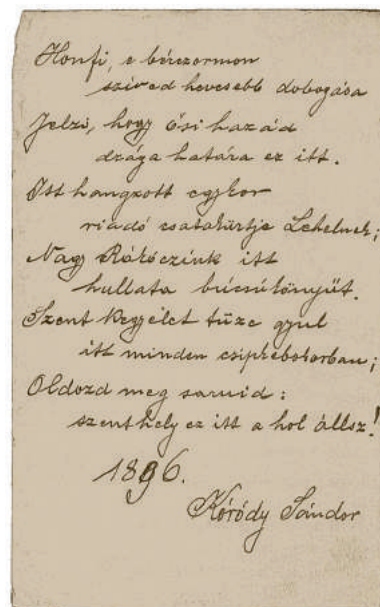 Honfi, e bérczormon
szived hevesebb dobogása
Jelzi, hogy ősi hazád
drága határa ez itt.
Itt hangzott egykor
riadó csatakürtje Lehelnek;
Nagy Rákóczink itt
hullata búcsúkönyűt.
Szent kegyelet tüze gyul
itt minden csipkebokorban;
Oldozd meg saruid:
szent hely ez itt a hol állsz!
1896.
Kóródy Sándor